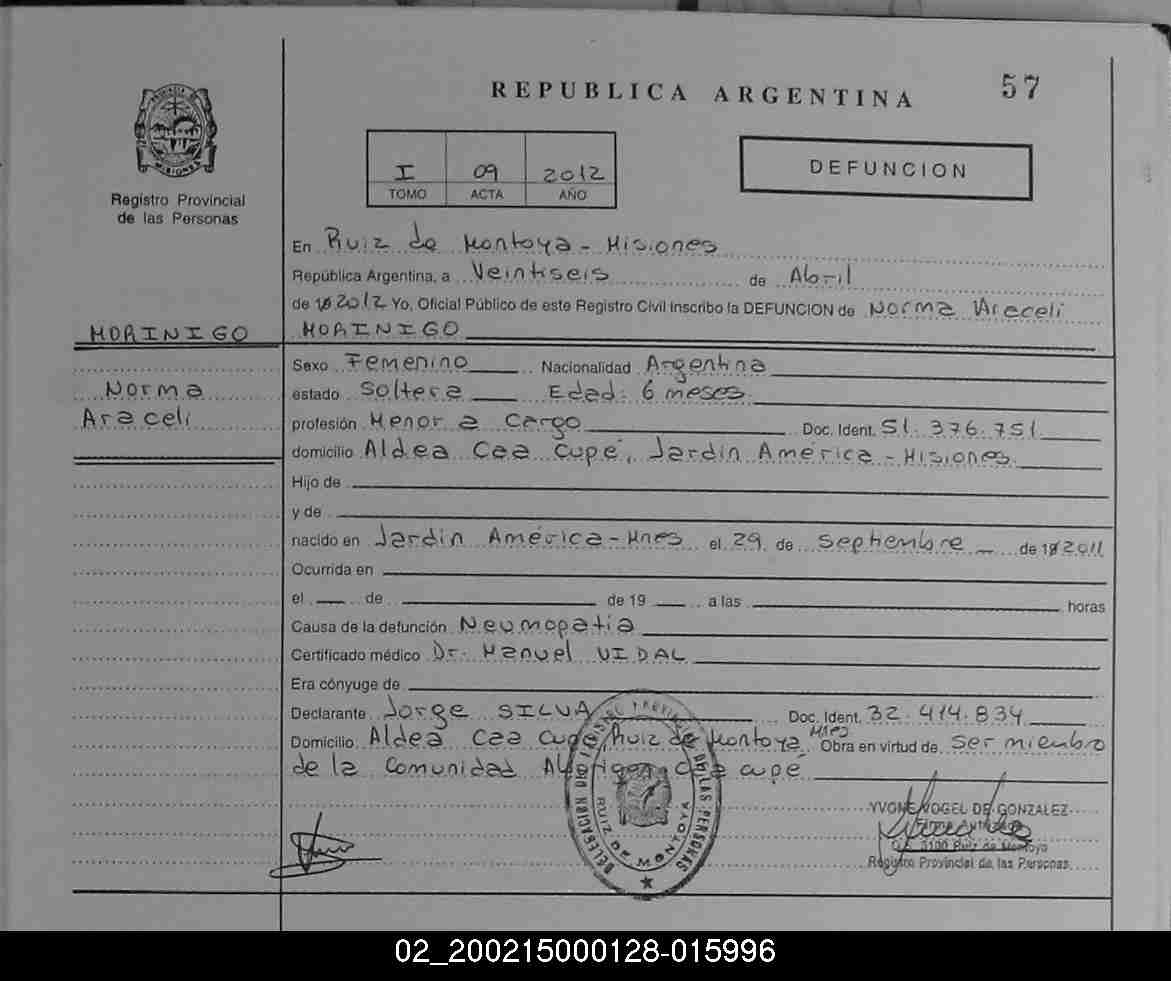 REPUBLICA ARGENTINA
57
PROVINCIA DE MISIONES
Registro Provincial
de las Personas
I 09 2012
TOMO ACTA AÑO
DEFUNCION
En Ruiz de Montoya - Misiones
República Argentina, a Veintiseis de Abril
de 2012 Yo, Oficial Público de este Registro Civil inscribo la DEFUNCION de Norma Araceli
MORINIGO
MORINIGO
Norma
Araceli
Sexo Femenino Nacionalidad Argentina
estado Soltera Edad: 6 meses
profesión Menor a Cargo Doc. Ident. 51.376.751
domicilio Aldea Caa Cupé, Jardin América - Misiones
Hijo de
y de
nacido en Jardin América - Mnes el 29 de Septiembre de 2011
Ocurrida en
el de de 19 a las horas
Causa de la defunción Neumopatia
Certificado médico Dr. Manuel VIDAL
Era cónyuge de
Declarante Jorge SILVA Doc. Ident. 32.414.834
Domicilio Aldea Caa Cupé, Ruiz de Montoya Mnes Obra en virtud de ser miembro
de la Comunidad Aborigen Caa cupé
DELEGACION DEL REGISTRO PROVINCIAL DE LAS PERSONAS
RUIZ DE MONTOYA
YVONE VOGEL DE GONZALEZ
3100 Ruiz de Montoya
Registro Provincial de las Personas
02_200215000128-015996